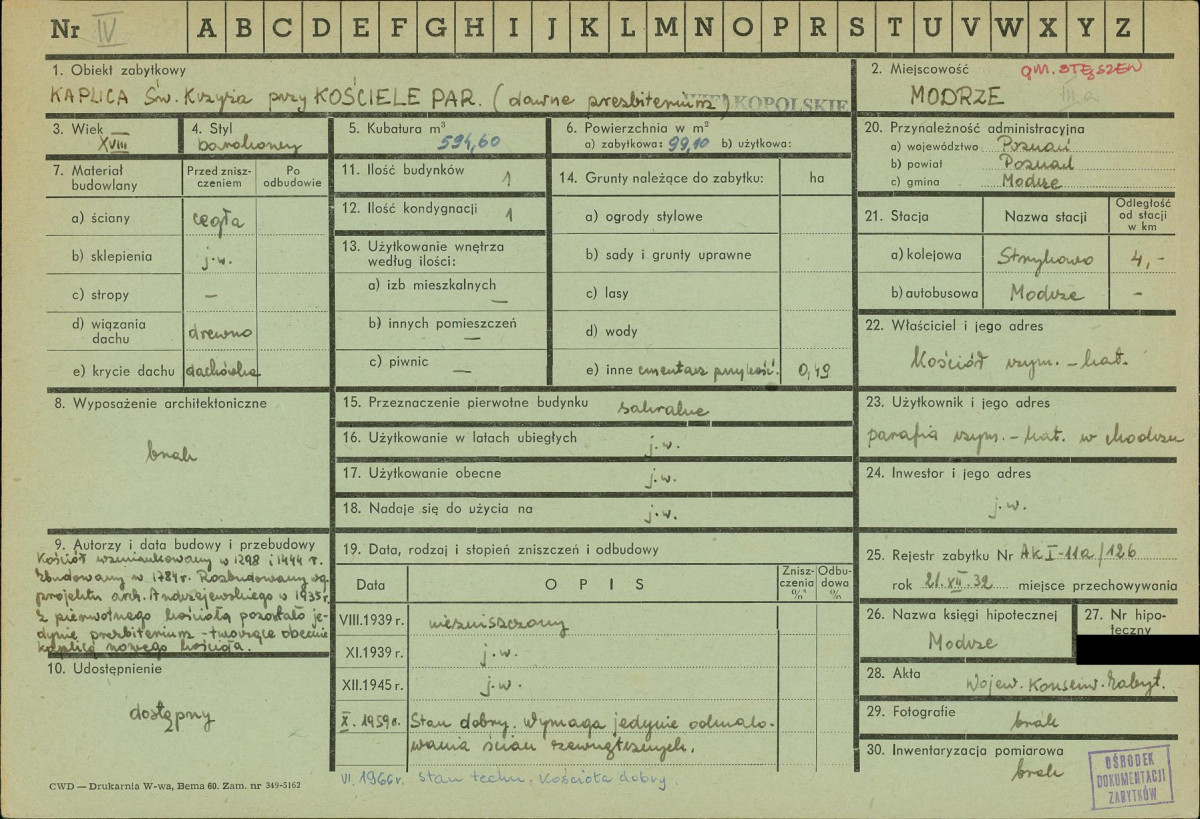 Nr IV A B C D E F G H I J K L M N O P R S T U V W X Y Z
1. Obiekt zabytkowy
KAPLICA Św. Krzyża przy KOŚCIELE PAR. (dawne prezbiterium)
WIELKOPOLSKIE
2. Miejscowość
GM. STĘSZEW
MODRZE
III a
3. Wiek
XVIII
4. Styl
barokowy
5. Kubatura m³
594,60
6. Powierzchnia w m²
a) zabytkowa: 99,10 b) użytkowa:
7. Materiał budowlany
Przed zniszczeniem
Po odbudowie
a) ściany cegła
b) sklepienia j.w.
c) stropy —
d) wiązania dachu drewno
e) krycie dachu dachówka
8. Wyposażenie architektoniczne
brak
9. Autorzy i data budowy i przebudowy
Kościół wzmiankowany w 1298 i 1444 r.
Zbudowany w 1784 r. Rozbudowany wg.
projektu arch. Andrzejewskiego w 1935 r.
Z pierwotnego kościoła pozostało je-
dynie prezbiterium - tworzące obecnie
kaplicę nowego kościoła.
10. Udostępnienie
dostępny
11. Ilość budynków 1
12. Ilość kondygnacji 1
13. Użytkowanie wnętrza
według ilości:
a) izb mieszkalnych —
b) innych pomieszczeń —
c) piwnic —
14. Grunty należące do zabytku: ha
a) ogrody stylowe
b) sady i grunty uprawne
c) lasy
d) wody
e) inne cmentarz przykość. 0,49
15. Przeznaczenie pierwotne budynku sakralne
16. Użytkowanie w latach ubiegłych j.w.
17. Użytkowanie obecne j.w.
18. Nadaje się do użycia na j.w.
19. Data, rodzaj i stopień zniszczeń i odbudowy
Data OPIS Zniszczenia %% Odbudowa %
VIII.1939 r. niezniszczony
XI.1939 r. j.w.
XII.1945 r. j.w.
X. 1959 r. Stan dobry. Wymaga jedynie odmalo-
wania ścian zewnętrznych.
VI. 1966 r. stan techn. Kościoła dobry.
20. Przynależność administracyjna
a) województwo Poznań
b) powiat Poznań
c) gmina Modrze
21. Stacja Nazwa stacji Odległość od stacji w km
a) kolejowa Strykowo 4,-
b) autobusowa Modrze -
22. Właściciel i jego adres
Kościół rzym. - kat.
23. Użytkownik i jego adres
parafia rzym. - kat. w Modrzu
24. Inwestor i jego adres
j.w.
25. Rejestr zabytku Nr AK I-11a/126
rok 21.XII.32 miejsce przechowywania
26. Nazwa księgi hipotecznej
Modrze
27. Nr hipo-
teczny
28. Akta Wojew. Konserw. Zabyt.
29. Fotografie
brak
30. Inwentaryzacja pomiarowa
brak
OŚRODEK
DOKUMENTACJI
ZABYTKÓW
CWD — Drukarnia W-wa, Bema 60. Zam. nr 349-5162